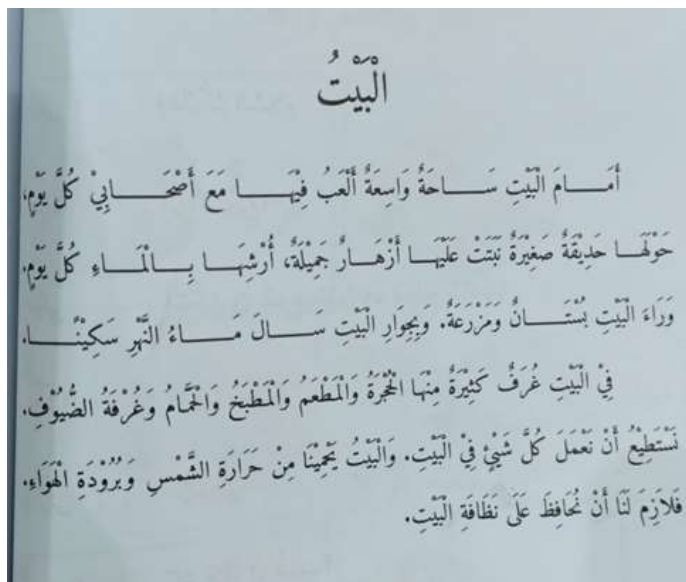 الْبَيْتُ
أَمَامَ الْبَيْتِ سَاحَةٌ وَاسِعَةٌ أَلْعَبُ فِيْهَا مَعَ أَصْحَابِيْ كُلَّ يَوْمٍ،
حَوْلَهَا حَدِيْقَةٌ صَغِيْرَةٌ نَبَتَتْ عَلَيْهَا أَزْهَارٌ جَمِيْلَةٌ، أُرْشِهَا بِالْمَاءِ كُلَّ يَوْمٍ.
وَرَاءَ الْبَيْتِ بُسْتَانٌ وَمَزْرَعَةٌ. وَبِجِوَارِ الْبَيْتِ سَالَ مَاءُ النَّهْرِ سَكِيْنًا.
فِيْ الْبَيْتِ غُرَفٌ كَثِيْرَةٌ مِنْهَا الْحُجْرَةُ وَالْمَطْعَمُ وَالْمَطْبَخُ وَالْحَمَّامُ وَغُرْفَةُ الضُّيُوْفِ.
نَسْتَطِيْعُ أَنْ نَعْمَلَ كُلَّ شَيْئٍ فِيْ الْبَيْتِ. وَالْبَيْتُ يَحْمِيْنَا مِنْ حَرَارَةِ الشَّمْسِ وَبُرُوْدَةِ الْهَوَاءِ.
فَلَازِمَ لَنَا أَنْ نُحَافِظَ عَلَى نَظَافَةِ الْبَيْتِ.